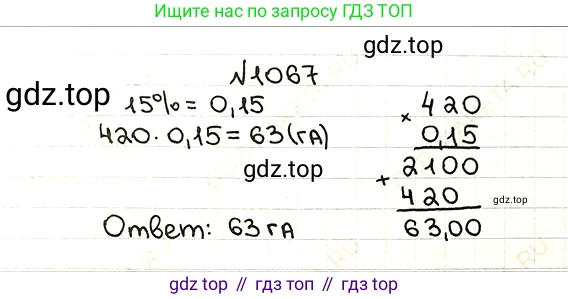 Ищите нас по запросу ГДЗ ТОП
gdz.top
№1067
gdz.top
15% = 0,15
420 · 0,15 = 63 (га)
gdz.top
Ответ: 63 га
× 420
0,15
+ 2100
420
gdz.top
63,00
gdz.top // гдз топ // gdz.top